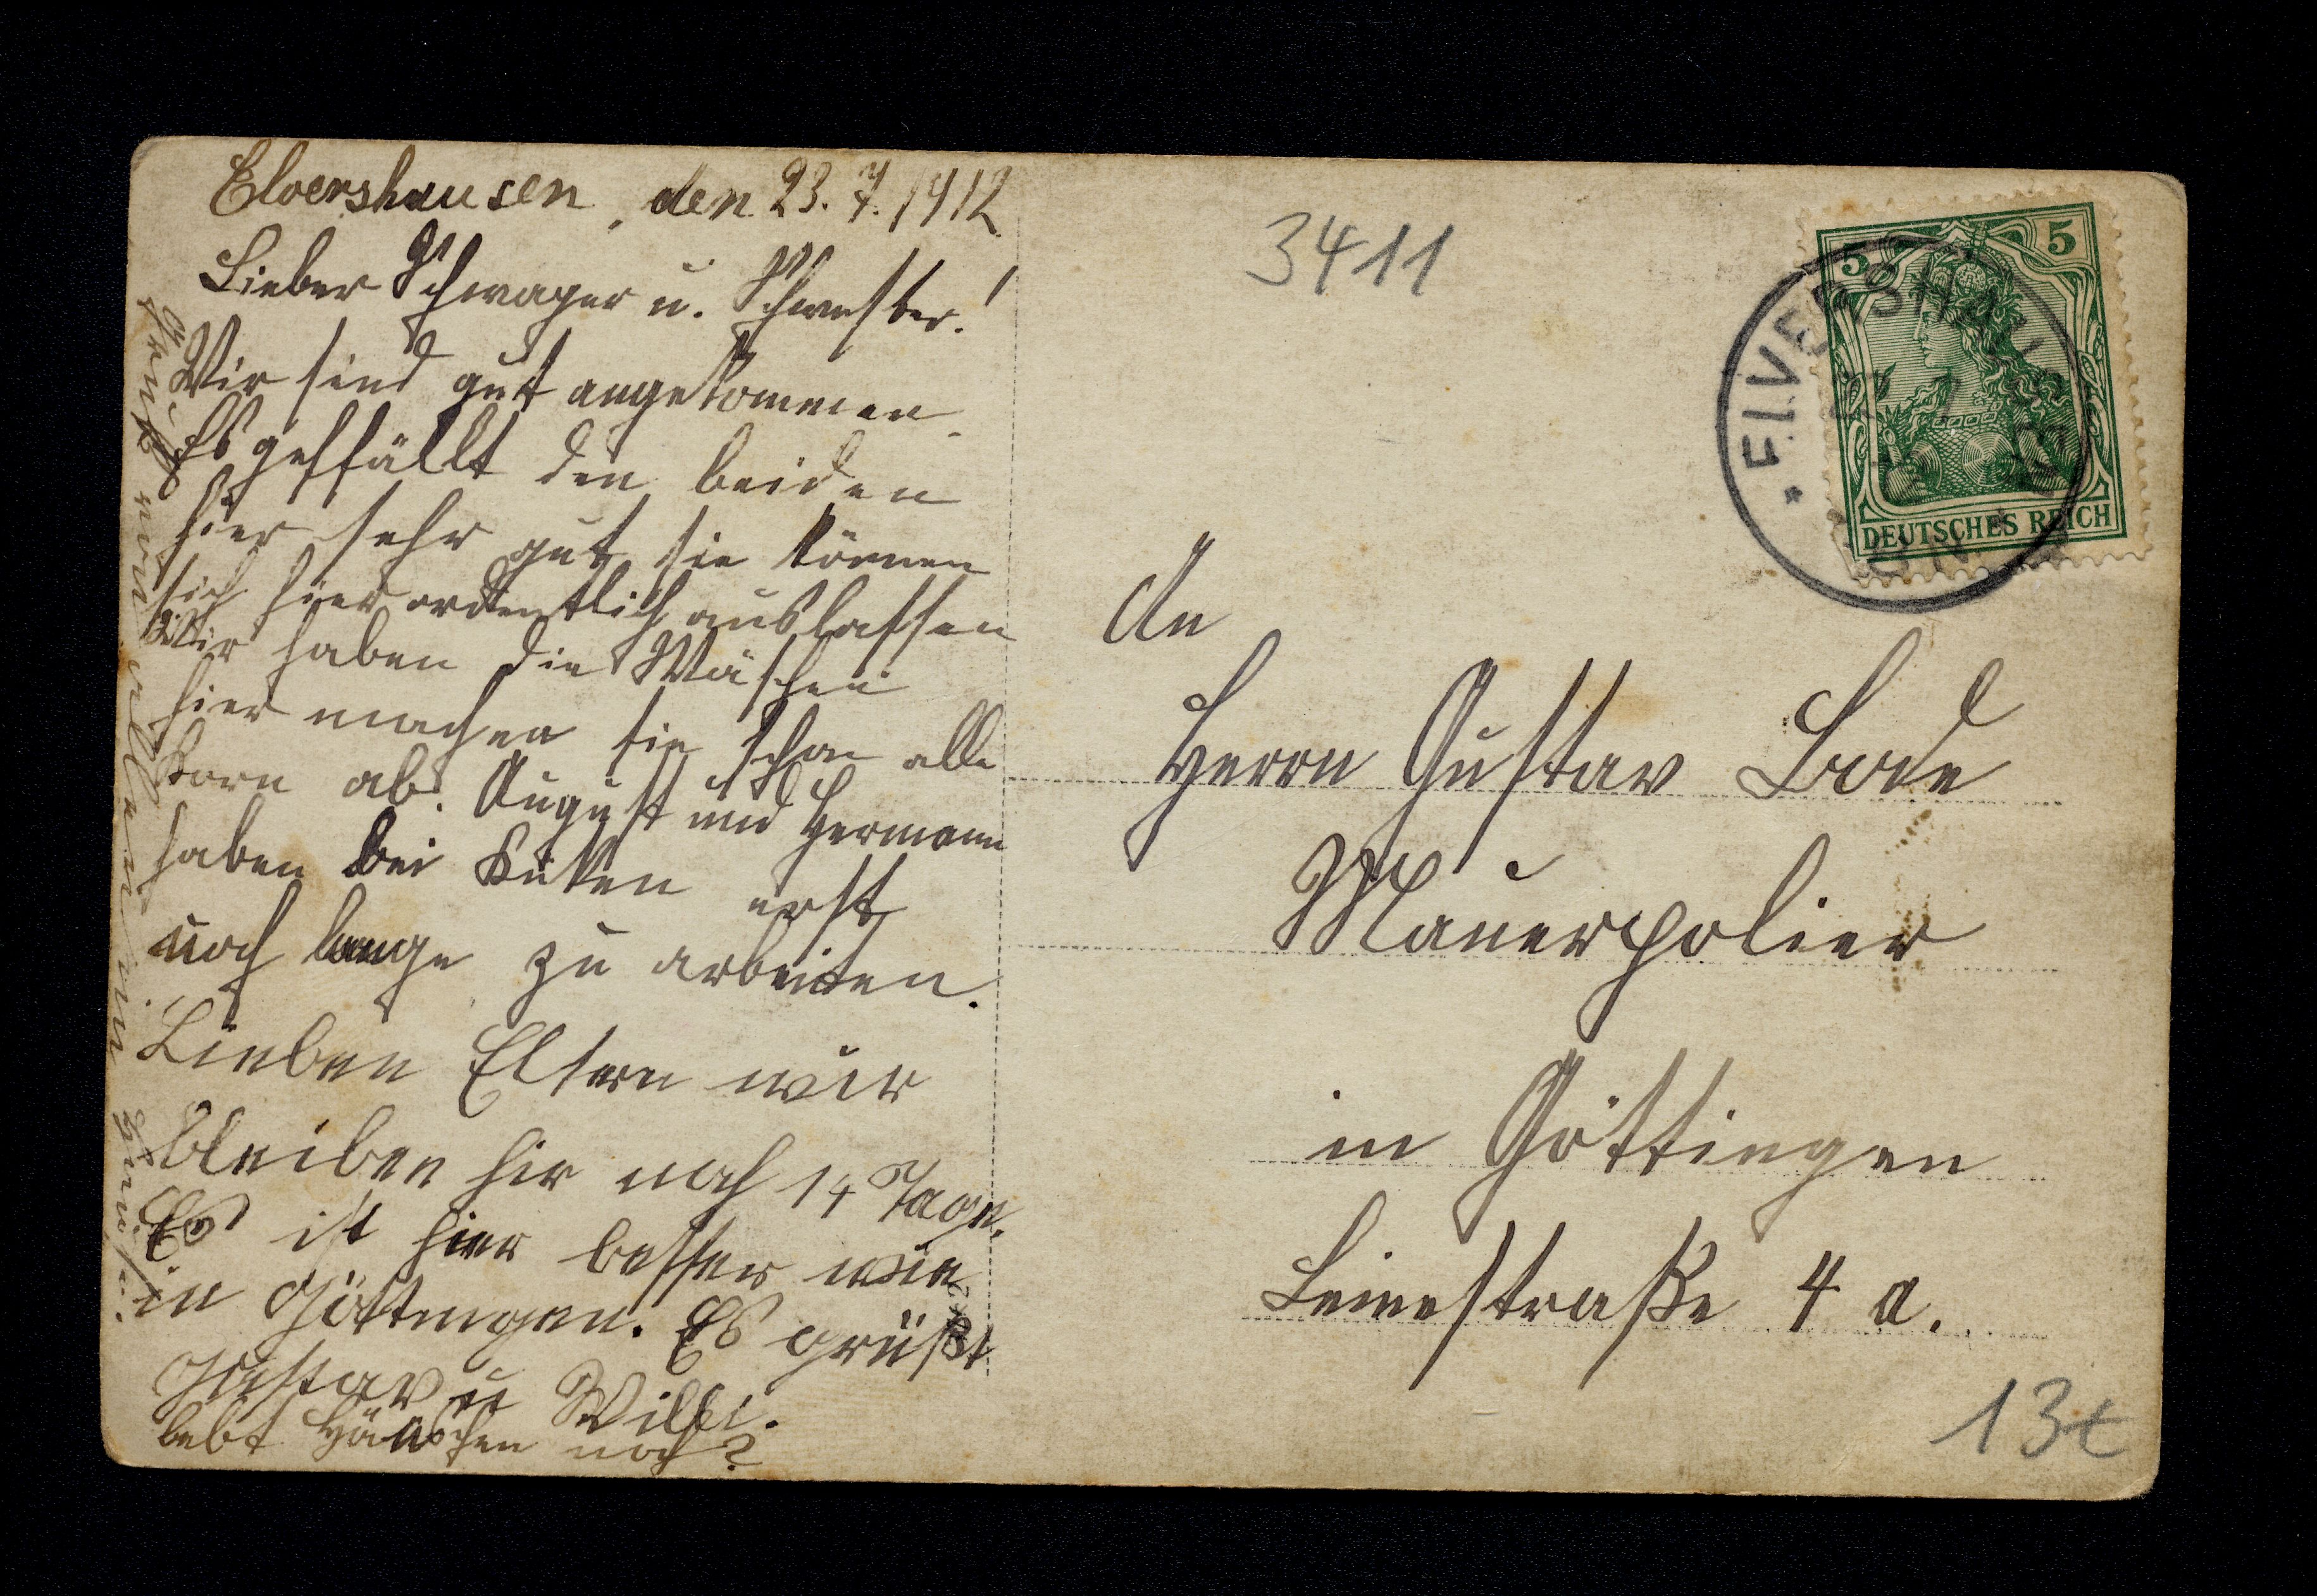 Elvershausen, den 23.7.1912
Lieber Schwager u. Schwester!
Wir sind gut angekommen
Es geffällt den beiden
hier sehr gut sie können
sich hier ordentlich auslassen
Wir haben die
hier machen sie schon alle
Korn ab. August und Hermann
haben bei erst
noch lange zu arbeiten.
Lieben Eltern wir
bleiben hir noch 14 Tage.
Es ist hier besser wie
in Göttingen. Es grüßt
Gustav u Willi.
lebt Hänschen noch?
Gruß von allen
3411
5 5
DEUTSCHES REICH
ELVERSHAUSEN
An
Herrn Gustav Bode
Mauerpolier
in Göttingen
Leinestraße 4 a.
13t